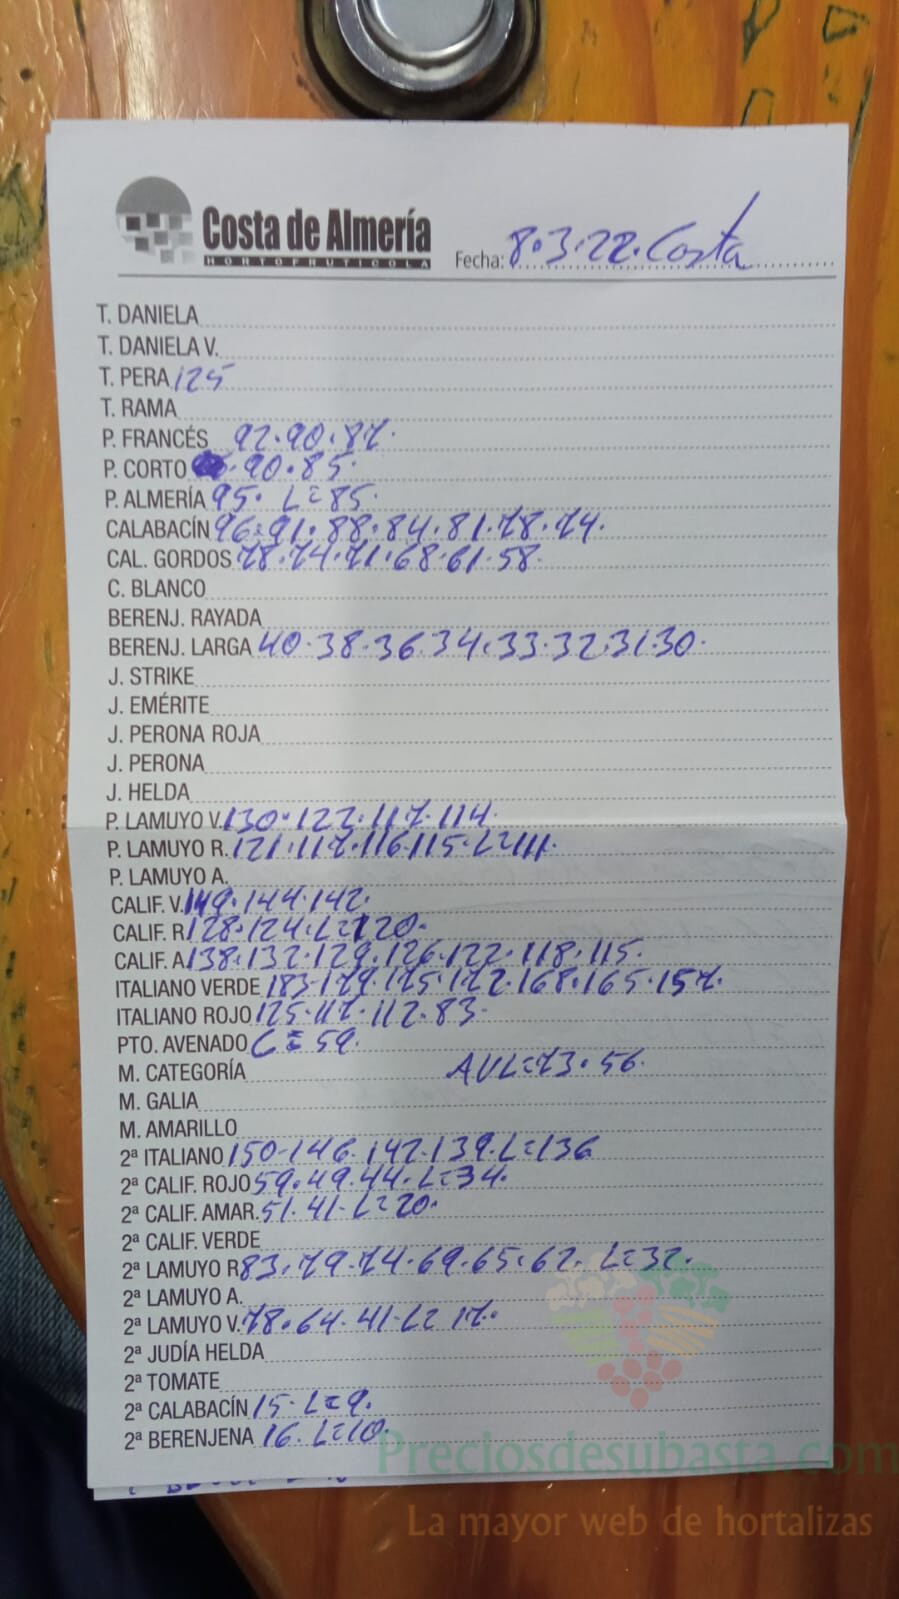 Costa de Almería
HORTOFRUTICOLA
Fecha: 8.3.22. Costa
T. DANIELA
T. DANIELA V.
T. PERA 125
T. RAMA
P. FRANCÉS 92.90.87.
P. CORTO .90.85.
P. ALMERÍA 95. L=85.
CALABACÍN 96.91.88.84.81.78.74.
CAL. GORDOS 78.74.71.68.61.58.
C. BLANCO
BERENJ. RAYADA
BERENJ. LARGA 40.38.36.34.33.32.31.30.
J. STRIKE
J. EMÉRITE
J. PERONA ROJA
J. PERONA
J. HELDA
P. LAMUYO V. 130.122.117.114.
P. LAMUYO R. 121.117.116.115.L=111.
P. LAMUYO A.
CALIF. V. 149.144.142.
CALIF. R 128.124.L=120.
CALIF. A 138.132.129.126.122.118.115.
ITALIANO VERDE 183.179.175.172.168.165.157.
ITALIANO ROJO 125.117.112.83.
PTO. AVENADO C=59.
M. CATEGORÍA AVL=73.56.
M. GALIA
M. AMARILLO
2ª ITALIANO 150.146.142.139.L=136
2ª CALIF. ROJO 59.49.44.L=34.
2ª CALIF. AMAR. 51.41.L=20.
2ª CALIF. VERDE
2ª LAMUYO R 83.79.74.69.65.62. L=32.
2ª LAMUYO A.
2ª LAMUYO V. 78.64.41.L=17.
2ª JUDÍA HELDA
2ª TOMATE
2ª CALABACÍN 15. L=9.
2ª BERENJENA 16. L=10.
Preciosdesubasta.com
La mayor web de hortalizas